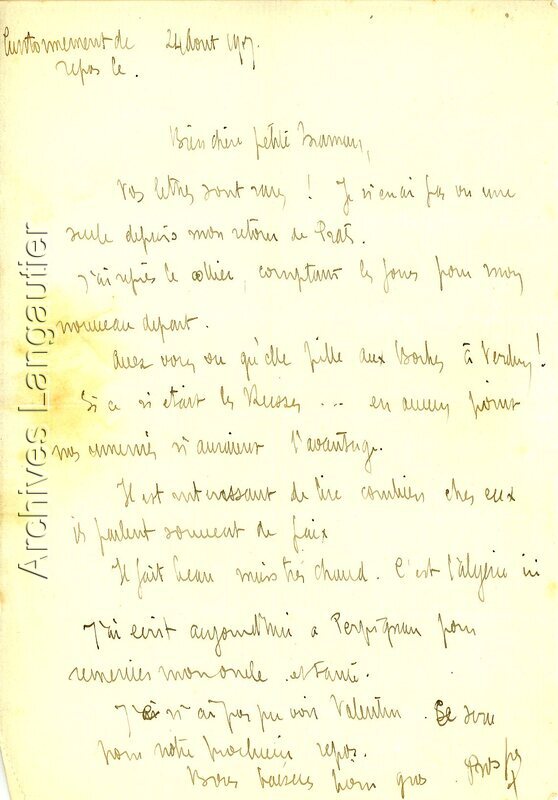 Cantonnement de 24 Aout 1917.
repos le.
Bien chère petite Maman,
Vos lettres sont rares ! Je n'en ai pas vu une
seule depuis mon retour de Prats.
J'ai repris le collier, comptant les jours pour mon
nouveau depart.
Avez vous vu qu'elle pille aux Boches à Verdun !
Si ce n'etait les Russes ... en aucun point
nos ennemis n'auraient l'avantage.
Il est interessant de lire combien chez eux
ils parlent souvent de paix
Il fait beau mais très chaud. C'est l'Algérie ici
J'ai ecrit aujourd'hui a Perpignan pour
remercier mon oncle et Tante.
Je n'ai pas pu voir Valentin. Ce sera
pour notre prochain repos.
Bons baisers bien gros
Archives Langautier